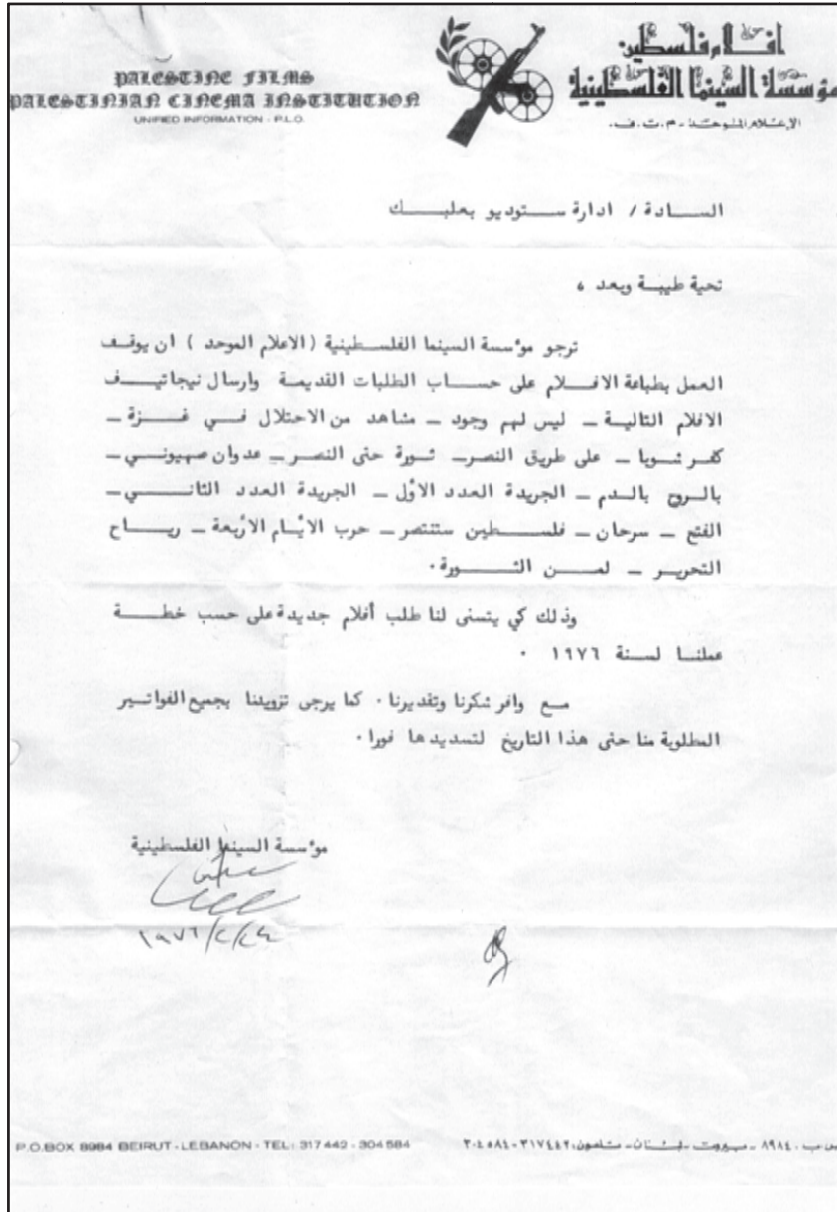 PALESTINE FILMS
PALESTINIAN CINEMA INSTITUTION
UNIFIED INFORMATION - P.L.O.
افلام فلسطين
مؤسسة السينما الفلسطينية
الإعلام الموحد - م.ت.ف.
الســـادة / ادارة ستوديو بعلبـــك
تحية طيبة وبعد ،
ترجو مؤسسة السينما الفلسطينية (الاعلام الموحد ) ان يوقف
العمل بطباعة الافلام على حساب الطلبات القديمة وارسال نيجاتيف
الافلام التالية ـ ليس لهم وجود ـ مشاهد من الاحتلال في غـزة ـ
كفر شوبا ـ على طريق النصر ـ ثورة حتى النصر ـ عدوان صهيوني ـ
بالروح بالدم ـ الجريدة العدد الاوّل ـ الجريدة العدد الثاني ـ
الفتح ـ سرحان ـ فلسطين ستنتصر ـ حرب الايّام الاربعة ـ رياح
التحرير ـ لمن الثورة .
وذلك كي يتسنى لنا طلب أفلام جديدة على حسب خطة
عملنا لسنة ١٩٧٦ .
مع وافر شكرنا وتقديرنا . كما يرجى تزويدنا بجميع الفواتير
المطلوبة منا حتى هذا التاريخ لتسديدها فورا .
مؤسسة السينما الفلسطينية
P.O.BOX 8984 BEIRUT - LEBANON - TEL: 317442 - 304584
ص.ب. ٨٩٨٤ - بيروت - لبنان - تلفون: ٣١٧٤٤٢ - ٣٠٤٥٨٤